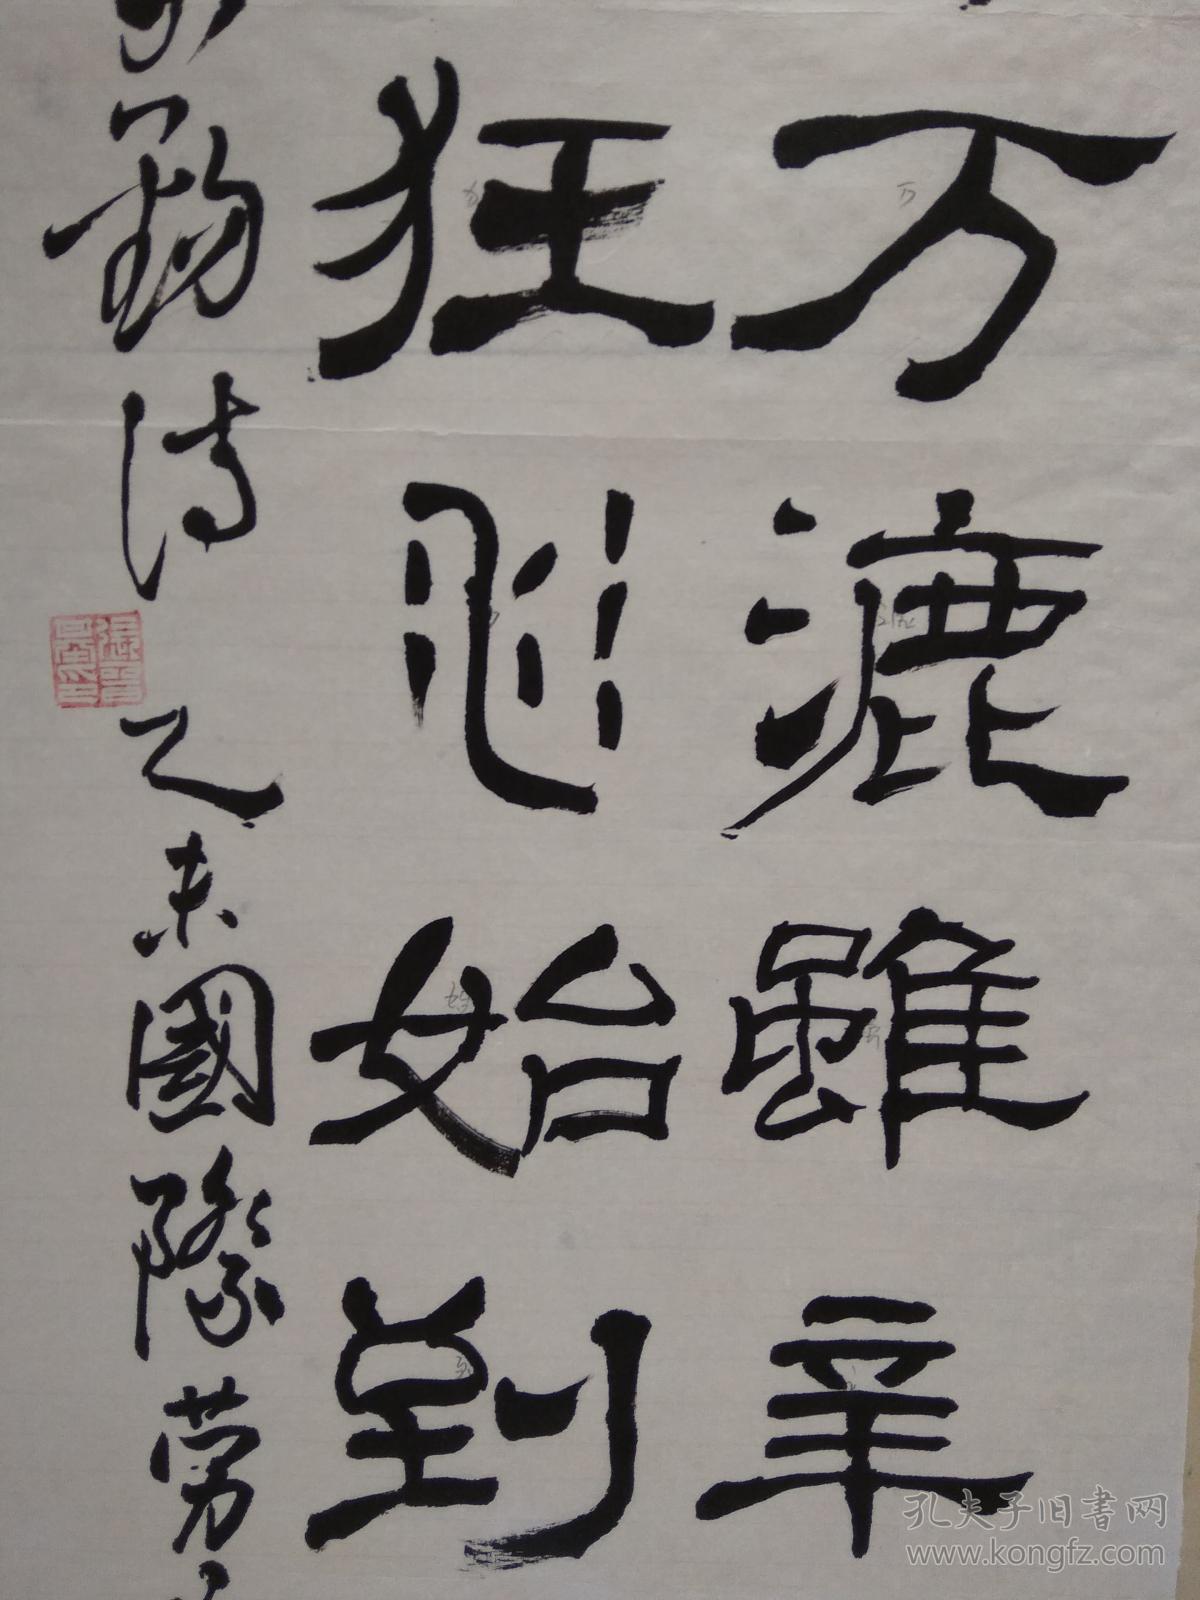 万漉雖辛
狂沙始到
錫詩乙未國際勞
孔夫子旧书网
www.kongfz.com